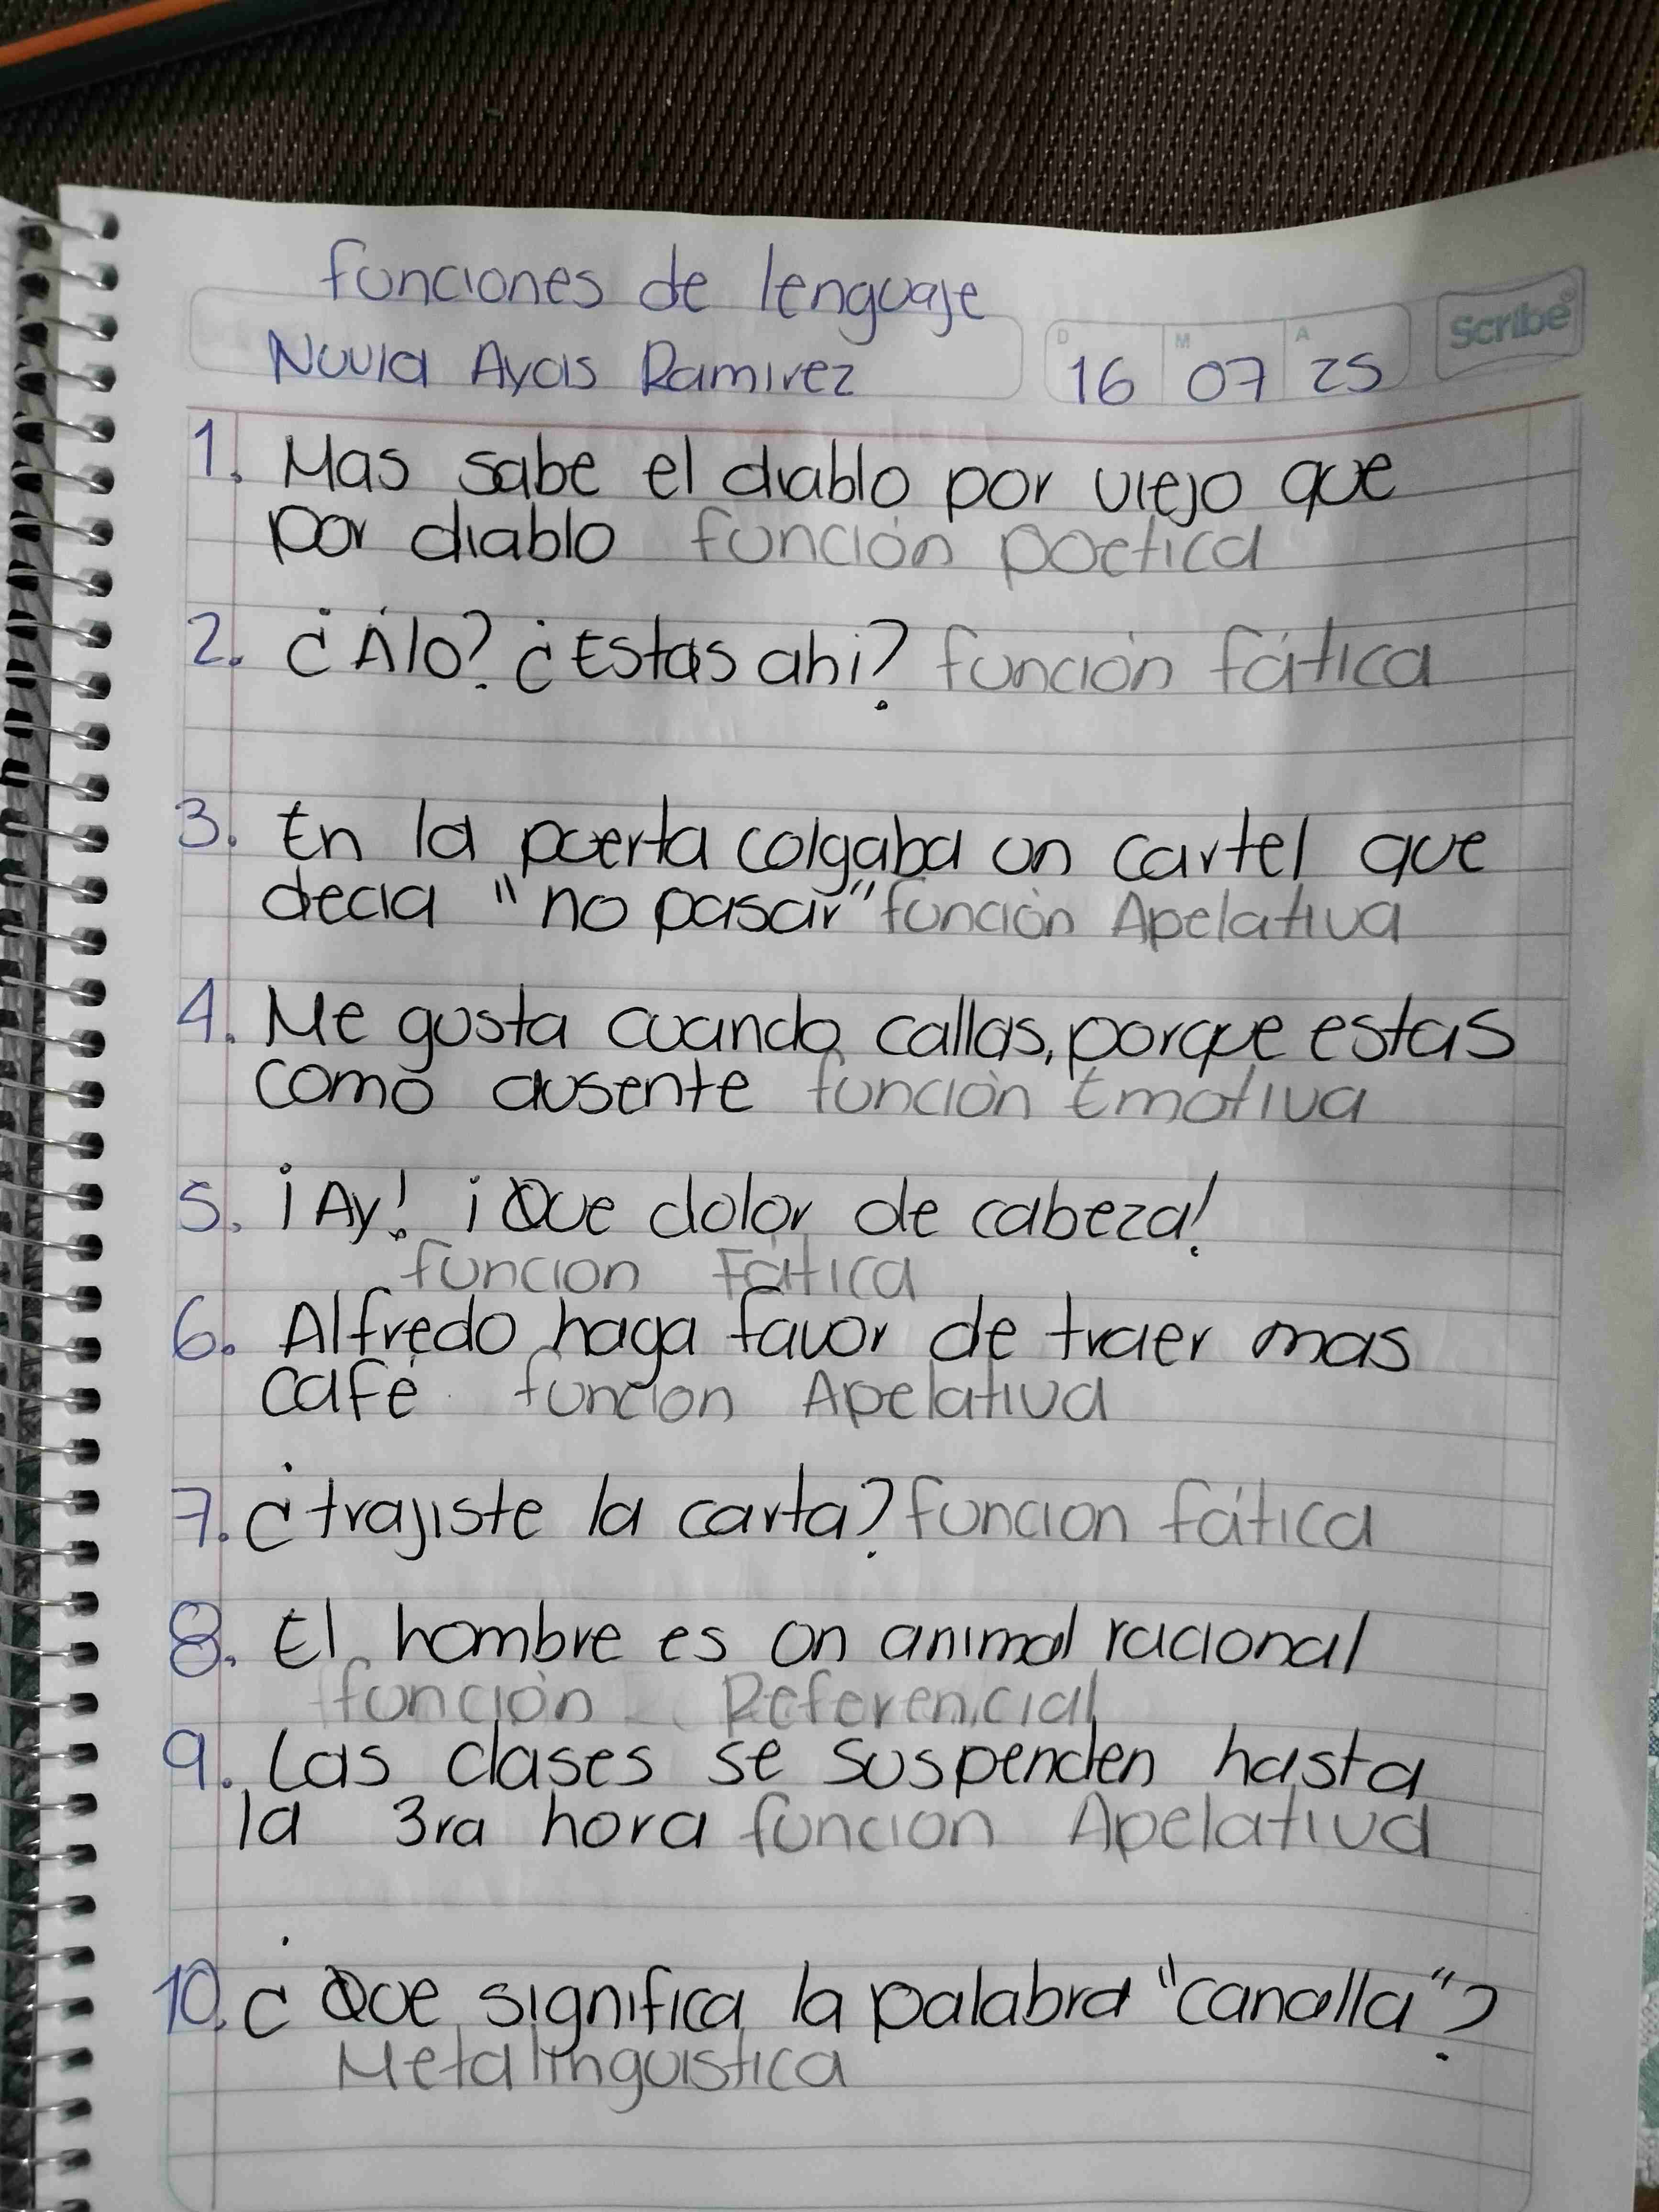 funciones de lenguaje
Nuvia Ayas Ramirez
D M A
16 07 25
Scribe
1. Mas sabe el diablo por viejo que
por diablo función poetica
2. ¿Álo? ¿Estas ahi? función fática
3. En la puerta colgaba un cartel que
decia "no pasar" función Apelativa
4. Me gusta cuando callas, porque estas
como ausente función Emotiva
5. ¡Ay! ¡Que dolor de cabeza!
funcion Fática
6. Alfredo haga favor de traer mas
café funcion Apelativa
7. ¿trajiste la carta? funcion fática
8. El hombre es un animal racional
función Referencial
9. Las clases se suspenden hasta
la 3ra hora funcion Apelativa
10. ¿Que significa la palabra "canalla"?
Metalinguistica